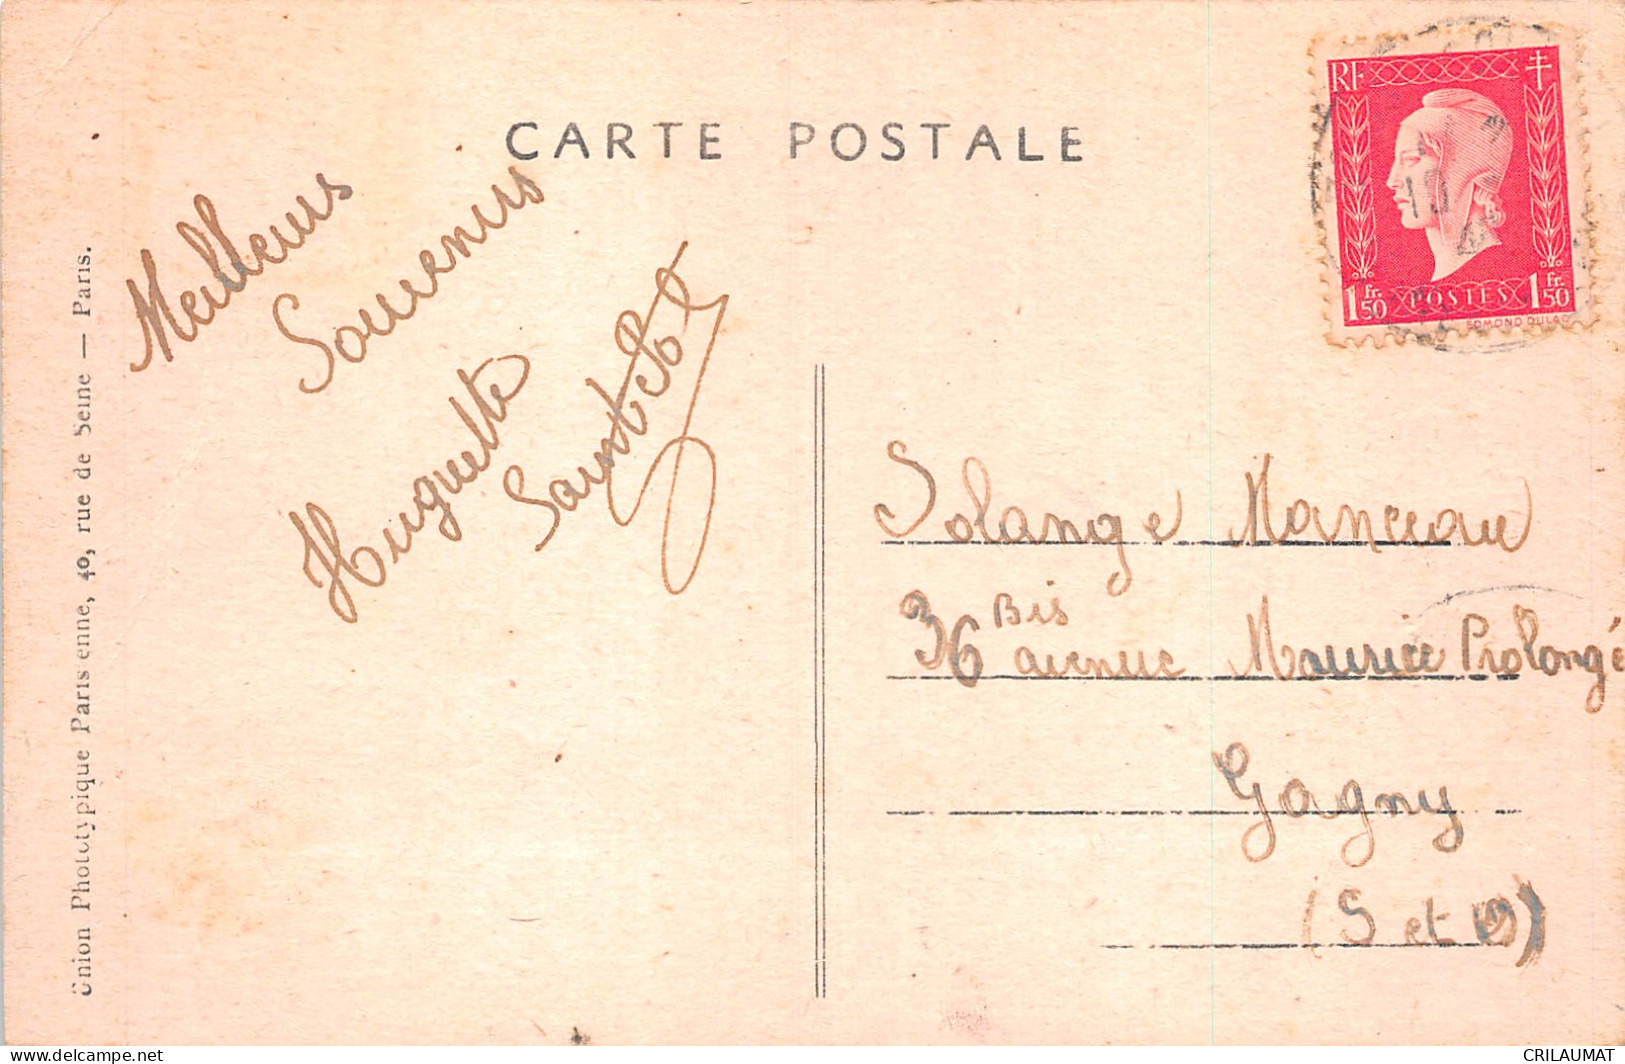 CARTE POSTALE
RF
1 Fr. 50 POSTES 1 Fr. 50
EDMOND DULAC
10
Meilleurs
Souvenirs
Huguette
Solange Manceau
36 Bis avenue Maurice Prolongé
Gagny
(S et O)
Union Phototypique Parisienne, 40, rue de Seine — Paris.
www.delcampe.net
CRILAUMAT